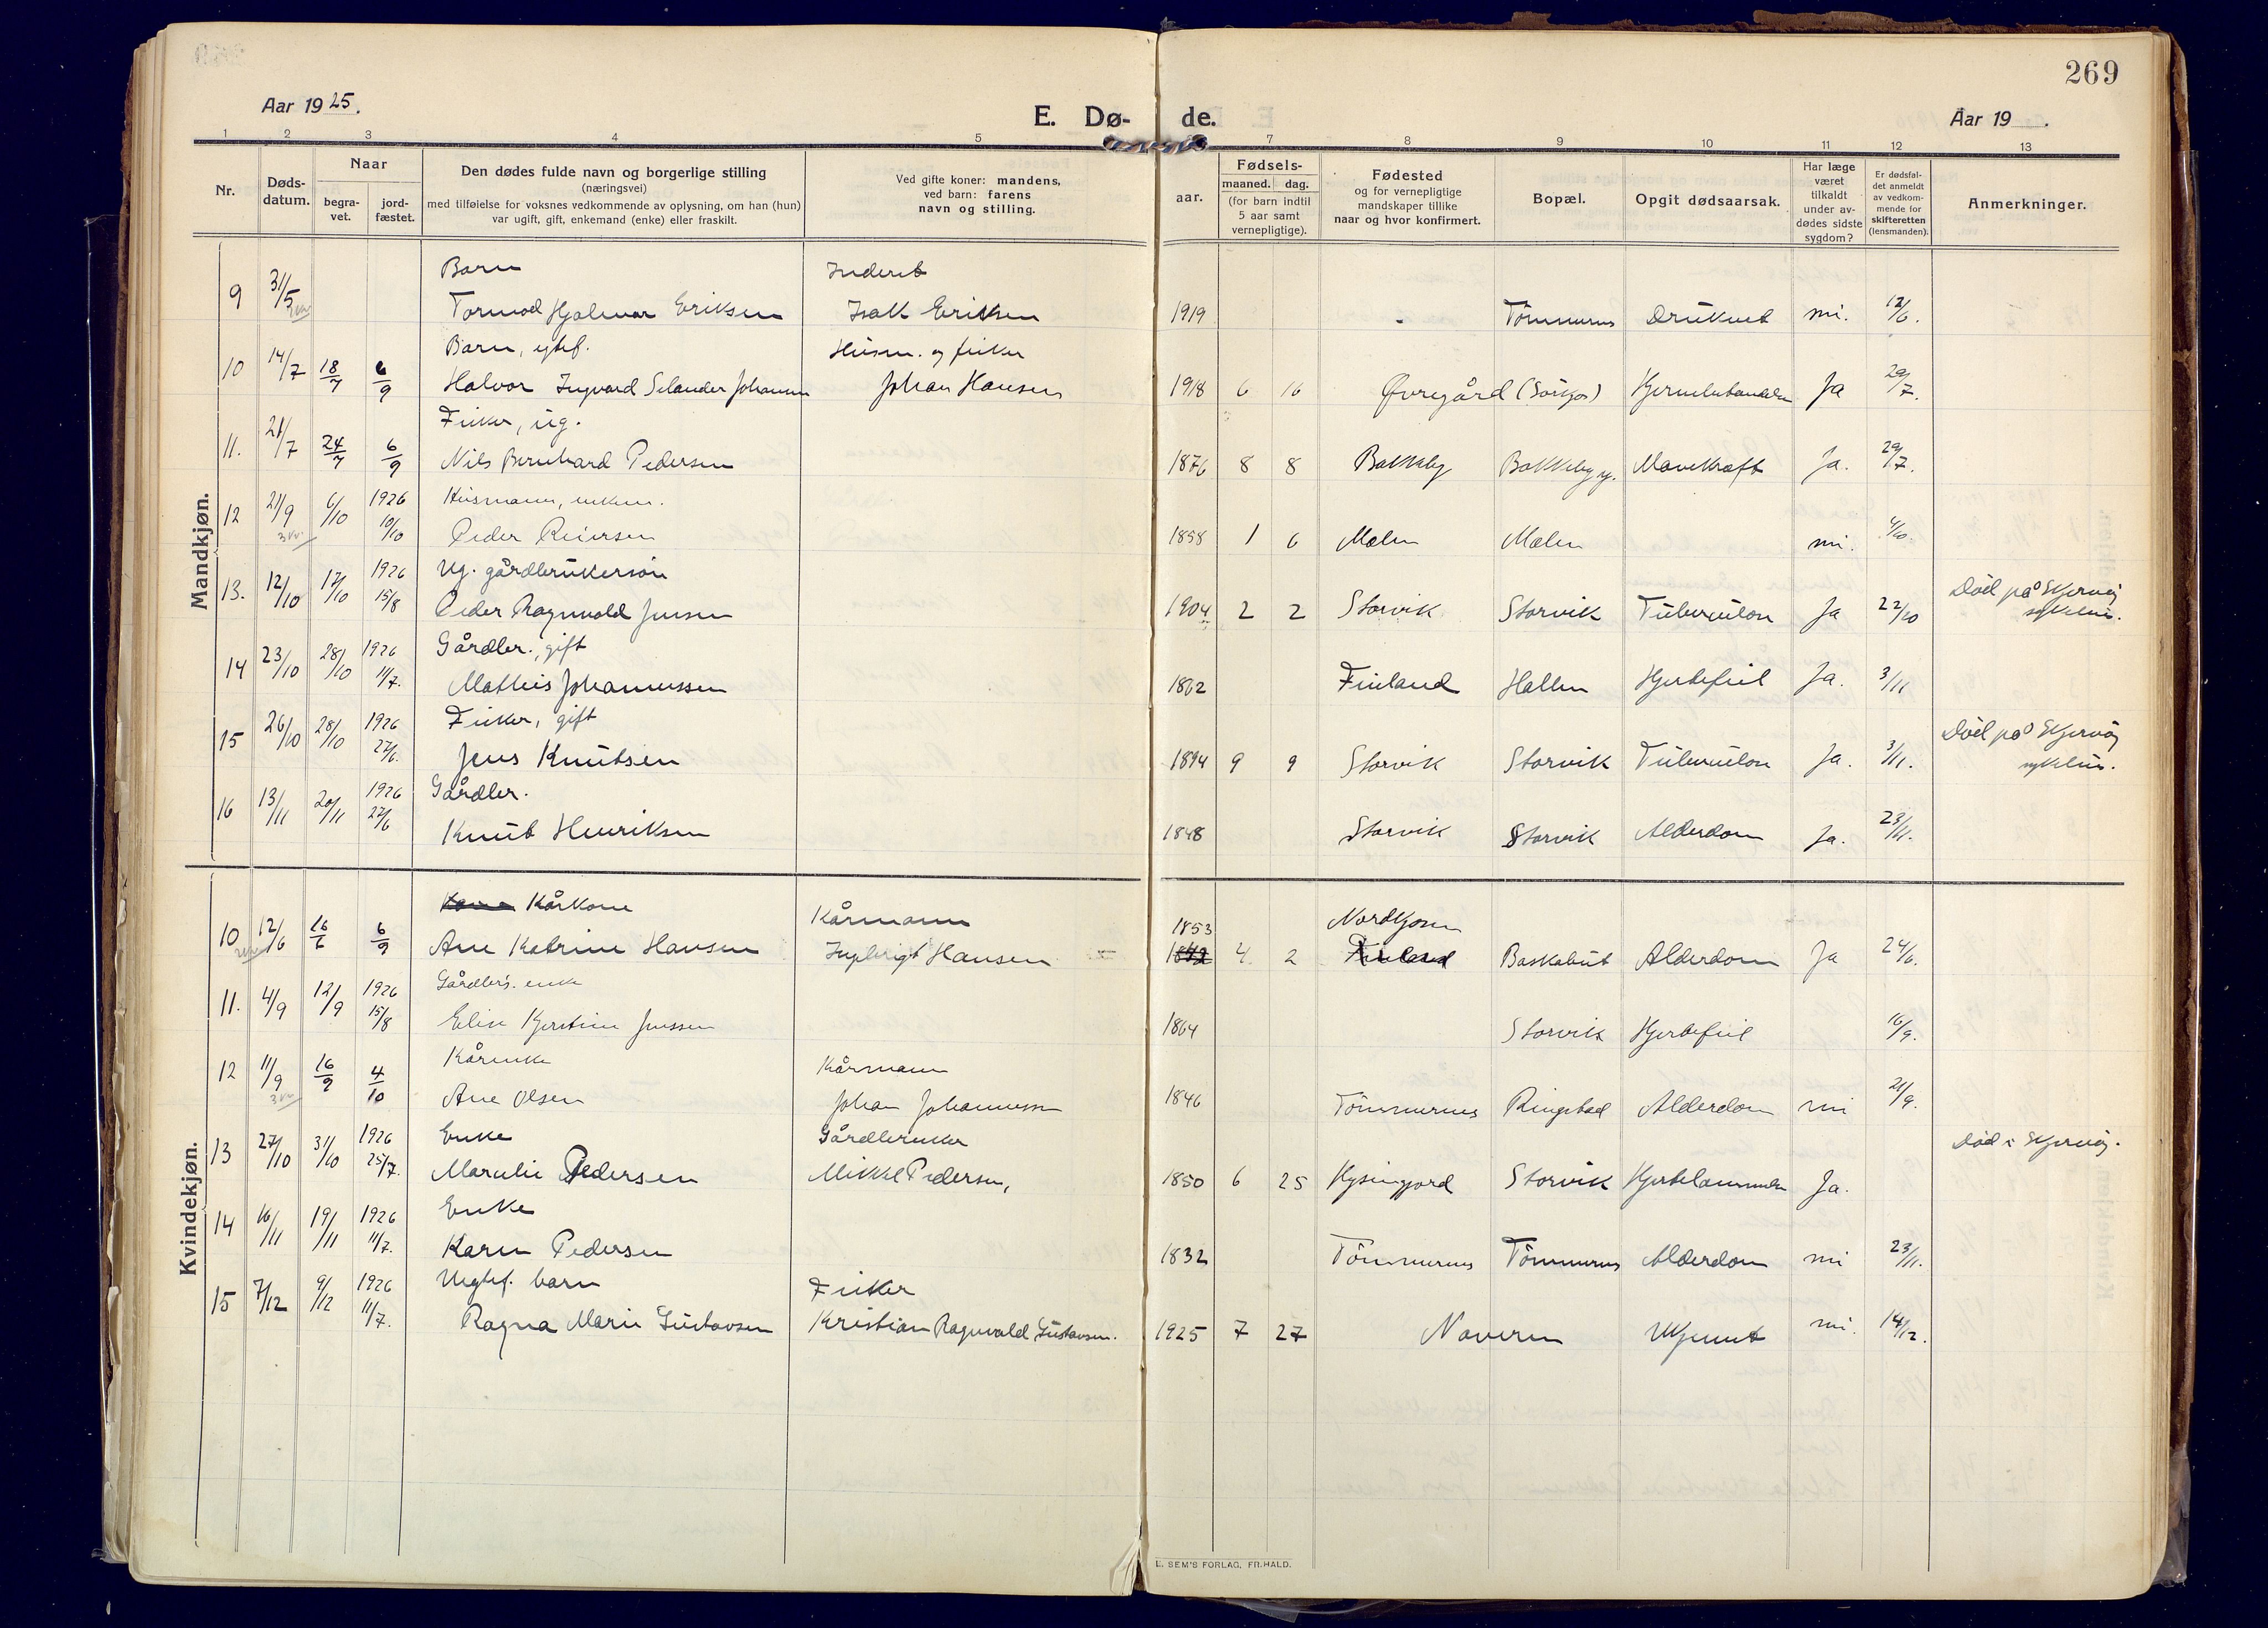 269
Aar 1925.
E. Dø- de.
Aar 19 .
1 2 3 4 5 7 8 9 10 11 12 13
Nr.
Døds-datum.
Naar
begra-vet.
jord-fæstet.
Den dødes fulde navn og borgerlige stilling
(næringsvei)
med tilføielse for voksnes vedkommende av oplysning, om han (hun)
var ugift, gift, enkemand (enke) eller fraskilt.
Ved gifte koner: mandens,
ved barn: farens
navn og stilling.
Fødsels-
aar.
maaned. dag.
(for barn indtil
5 aar samt
vernepligtige).
Fødested
og for vernepligtige
mandskaper tillike
naar og hvor konfirmert.
Bopæl.
Opgit dødsaarsak.
Har læge
været
tilkaldt
under av-
dødes sidste
sygdom?
Er dødsfal-
det anmeldt
av vedkom-
mende for
skifteretten
(lensmanden).
Anmerkninger.
Mandkjøn.
Barn
9 31/5 Tormod Hjalmar Eriksen Isak Eriksen 1919 Tömmernes Druknet 12/6.
Barn, egtef. Husm. og fisker
10 14/7 18/7 6/9 Halvor Ingvard Selander Johansen Johan Hansen 1918 6 16 Øvregård (Sörkjos) Ja 29/7.
Fisker, ug.
11. 21/7 24/7 6/9 Nils Bernhard Pedersen 1876 8 8 Bakkeby Bakkeby Mavekræft Ja. 29/7.
1926 Husmann, enkem.
12 21/9 6/10 10/10 Peder Reiersen 1858 1 6 Mælen Mælen nei. 4/10.
1926 Ug. gårdbrukersön
13. 12/10 17/10 15/8 Peder Ragnvald Jensen 1904 2 2 Storvik Storvik Tuberculose Ja 22/10 Död på Skjervöy sykehus.
1926 Gårdbr., gift
14 23/10 28/10 11/7. Mathis Johannessen 1862 Finland Hallen Hjertefeil Ja. 3/11
1926 Fisker, gift
15 26/10 28/10 27/6. Jens Knutsen 1894 9 9 Storvik Storvik Tuberculose Ja. 3/11. Död på Skjervöy sykehus.
1926 Gårdbr.
16 13/11 20/11 27/6 Knut Henriksen 1848 Storvik Storvik Alderdom Ja. 23/11.
Kvindekjøn.
Kona Kårkone Kårmann 1853 Nordkjosen
10 12/6 16/6 6/9 Ane Katrine Hansen Ingbrigt Hansen 4 2 Finland Baskabut Alderdom Ja 24/6.
1926 Gårdbr's. enke
11. 4/9 12/9 15/8 Elise Kjerstine Jenssen 1864 Storvik Hjertefeil 16/9.
Kårenke Kårmann
12 11/9 16/9 4/10 Ane Olsen Johan Johannessen 1846 Tömmernes Ringstad Alderdom nei 21/9.
1926 Enke Gårdbruker
13 27/10 31/10 25/7. Marelie Pedersen Mikkel Pedersen, 1850 6 25 Storvik Hjertelammelse Ja. Död i Skjervöy.
1926 Enke
14 16/11 19/11 11/7. Karen Pedersen 1832 Tömmernes Tömmernes Alderdom nei 23/11.
1926 Uegtef. barn Fisker
15 7/12 9/12 11/7. Ragna Marie Gustavsen Kristian Ragnvald Gustavsen. 1925 7 27 Naveren Ukjent nei. 14/12.
E. SEM'S FORLAG, FR.HALD.